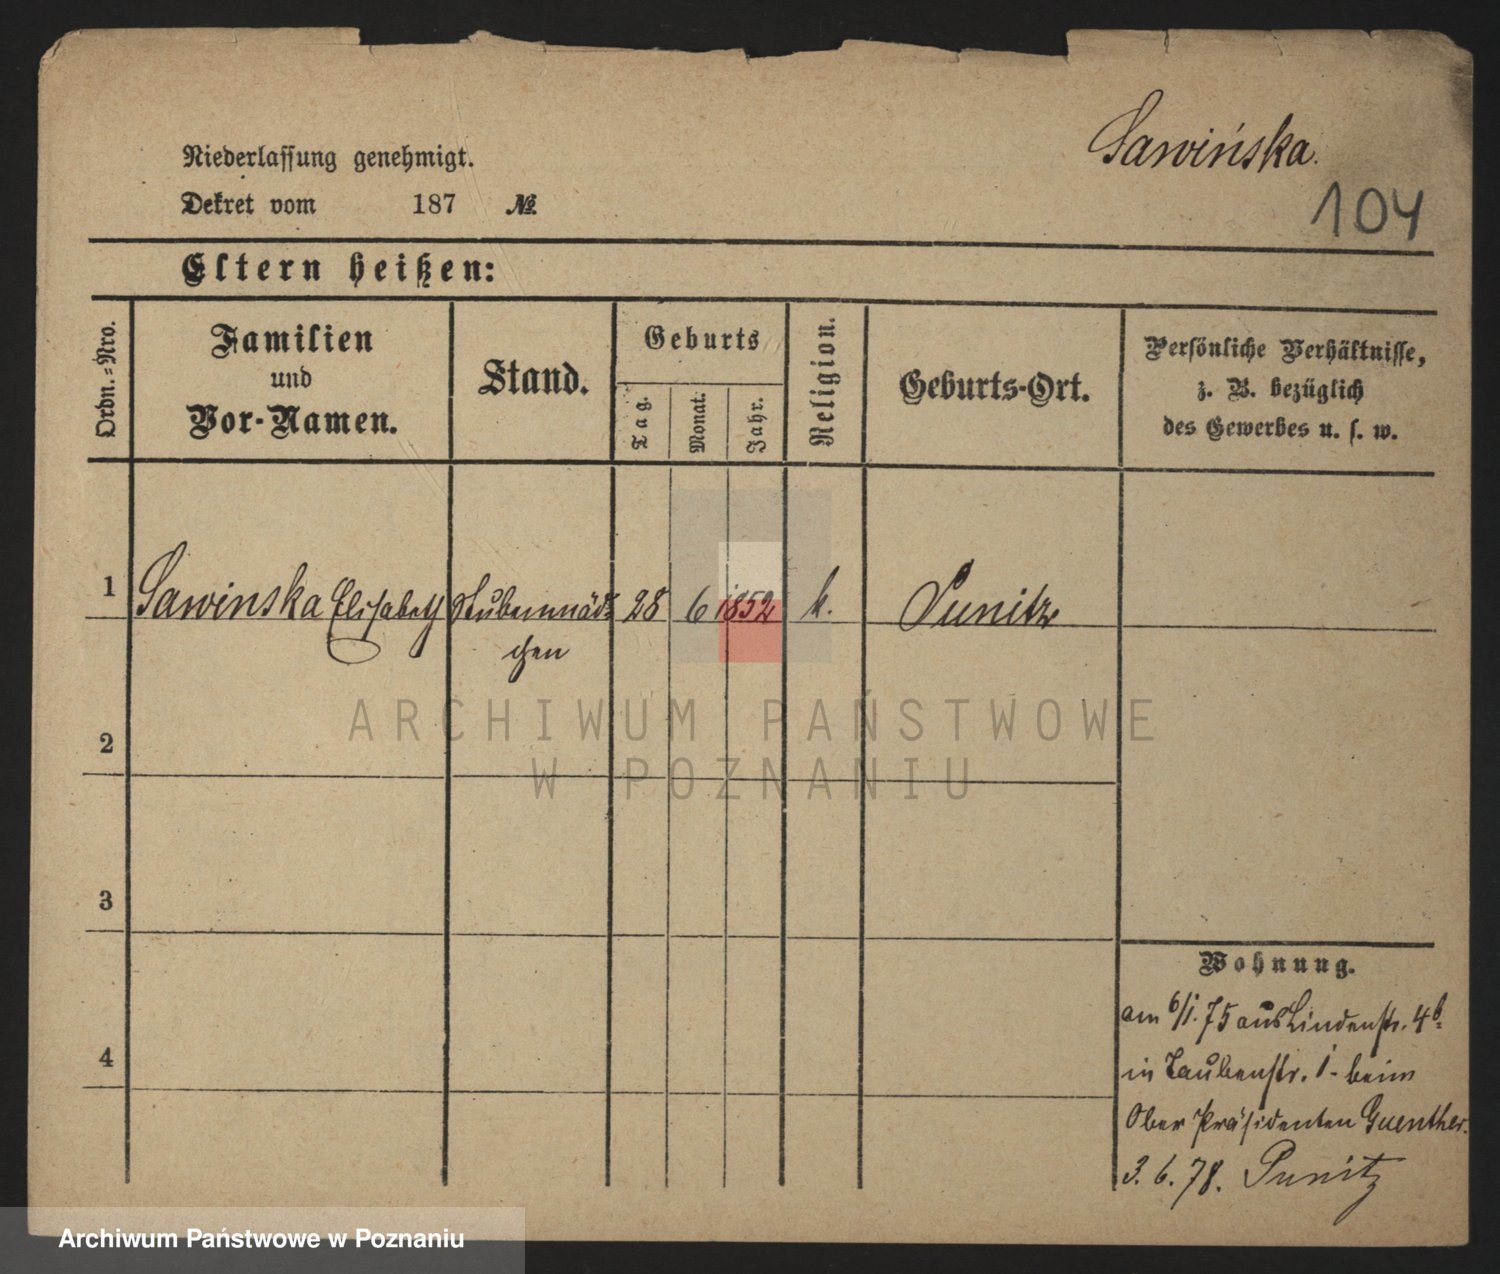 Sawińska.
104
Niederlassung genehmigt.
Dekret vom 187 №
Eltern heißen:
Ordn.=Nro.
Familien
und
Vor-Namen.
Stand.
Geburts
Tag.
Monat.
Jahr.
Religion.
Geburts-Ort.
Persönliche Verhältnisse,
z. B. bezüglich
des Gewerbes u. s. w.
1 Sawinska Elisabeth Stubenmäd= 28 6 1852 k. Punitz
chen
ARCHIWUM PAŃSTWOWE
W POZNANIU
2
3
4
Wohnung.
am 6/1. 75 aus Lindenstr. 4b.
in Taubenstr. 1 - beim
Ober Präsidenten Guenther.
3. 6. 78. Punitz
Archiwum Państwowe w Poznaniu